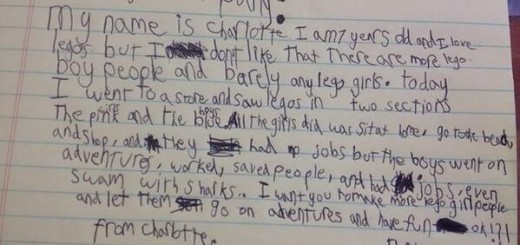 My name is Charlotte I am 7 years old and I love
legos but I don't like that there are more lego
boy people and barely any lego girls. today
I went to a store and saw legos in two sections
The pink girls and the blue boys. All the girls did was sit at home, go to the beach,
and shop, and they had no jobs but the boys went on
adventures, worked, saved people, and had jobs, even
swam with sharks.. I want you to make more lego girl people
and let them go on adventures and have fun ok!?!
from Charlotte.